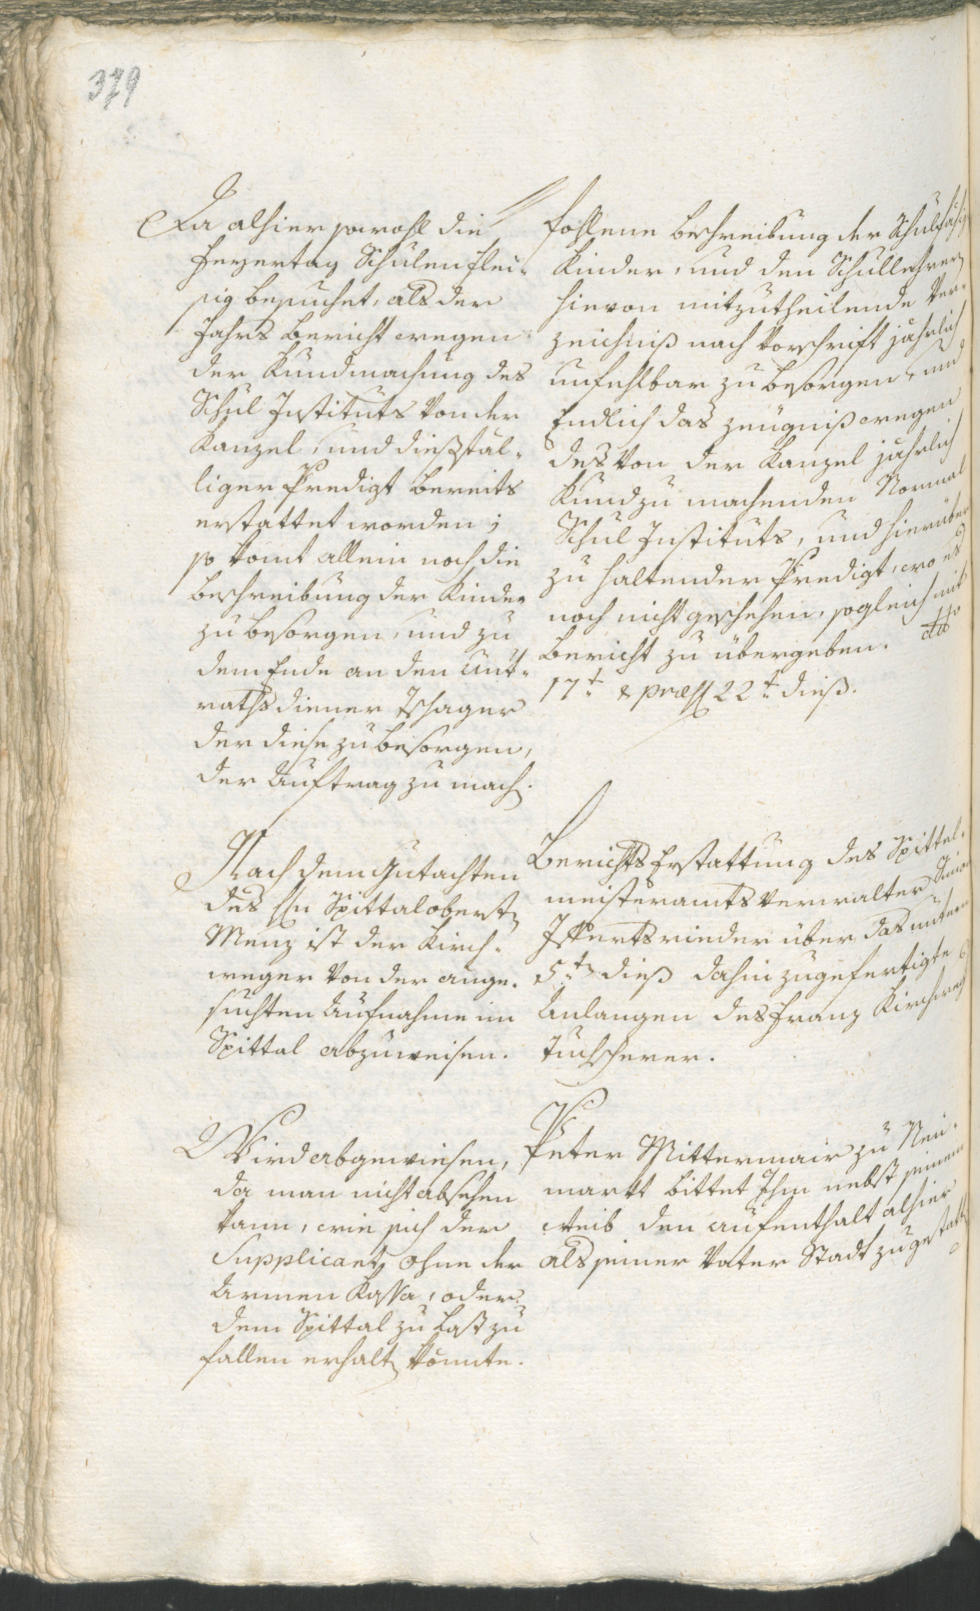 379
Da alhier sowohl die
Feyertag Schulen flei-
sig besuchet, als der
Jahrs Bericht wegen
der Kundmachung des
Schul Instituts von der
Kanzel, und dießfäl-
liger Predigt bereits
erstattet worden;
so komt allein noch die
Beschreibung der Kinder
zu besorgen, und zu
dem Ende an den
rathsdiener Tschager
der diese zu besorgen,
der Auftrag zu mach.
fohlene Beschreibung der Schulfähig
Kinder, und den Schullehrer
hievon mitzutheilende Ver-
zeichniß nach Vorschrift jährlich
unfehlbar zu besorgen, und
Endlich das Zeugniß wegen
des von der Kanzel jährlich
Kundzu machenden Normal
Schul Instituts, und hierüber
zu haltender Predigt, wo es
noch nicht geschehen, sogleich mit
Bericht zu übergeben. dtto
17t & praes 22t dieß.
Nach dem Gutachten
des Hn Spittaloberst
Menz ist der Kirch-
weger von der ange-
suchten Aufnahme im
Spittal abzuweisen.
Berichts Erstattung des Spittel-
meisteramts Verwalter
über das unterm
5t dieß dahin zugefertigte
Anlangen des Franz Kirchweg
Tuchscherer.
Wird abgewiesen,
da man nicht absehen
kann, wie sich der
Supplicant ohne der
Armen Kassa, oder
dem Spittal zu Last zu
fallen erhalt könnte.
Peter Mittermair zu Neu-
markt bittet Ihm nebst seinem
Weib den aufenthalt alhier
als seiner Vater Stadt zugestatt